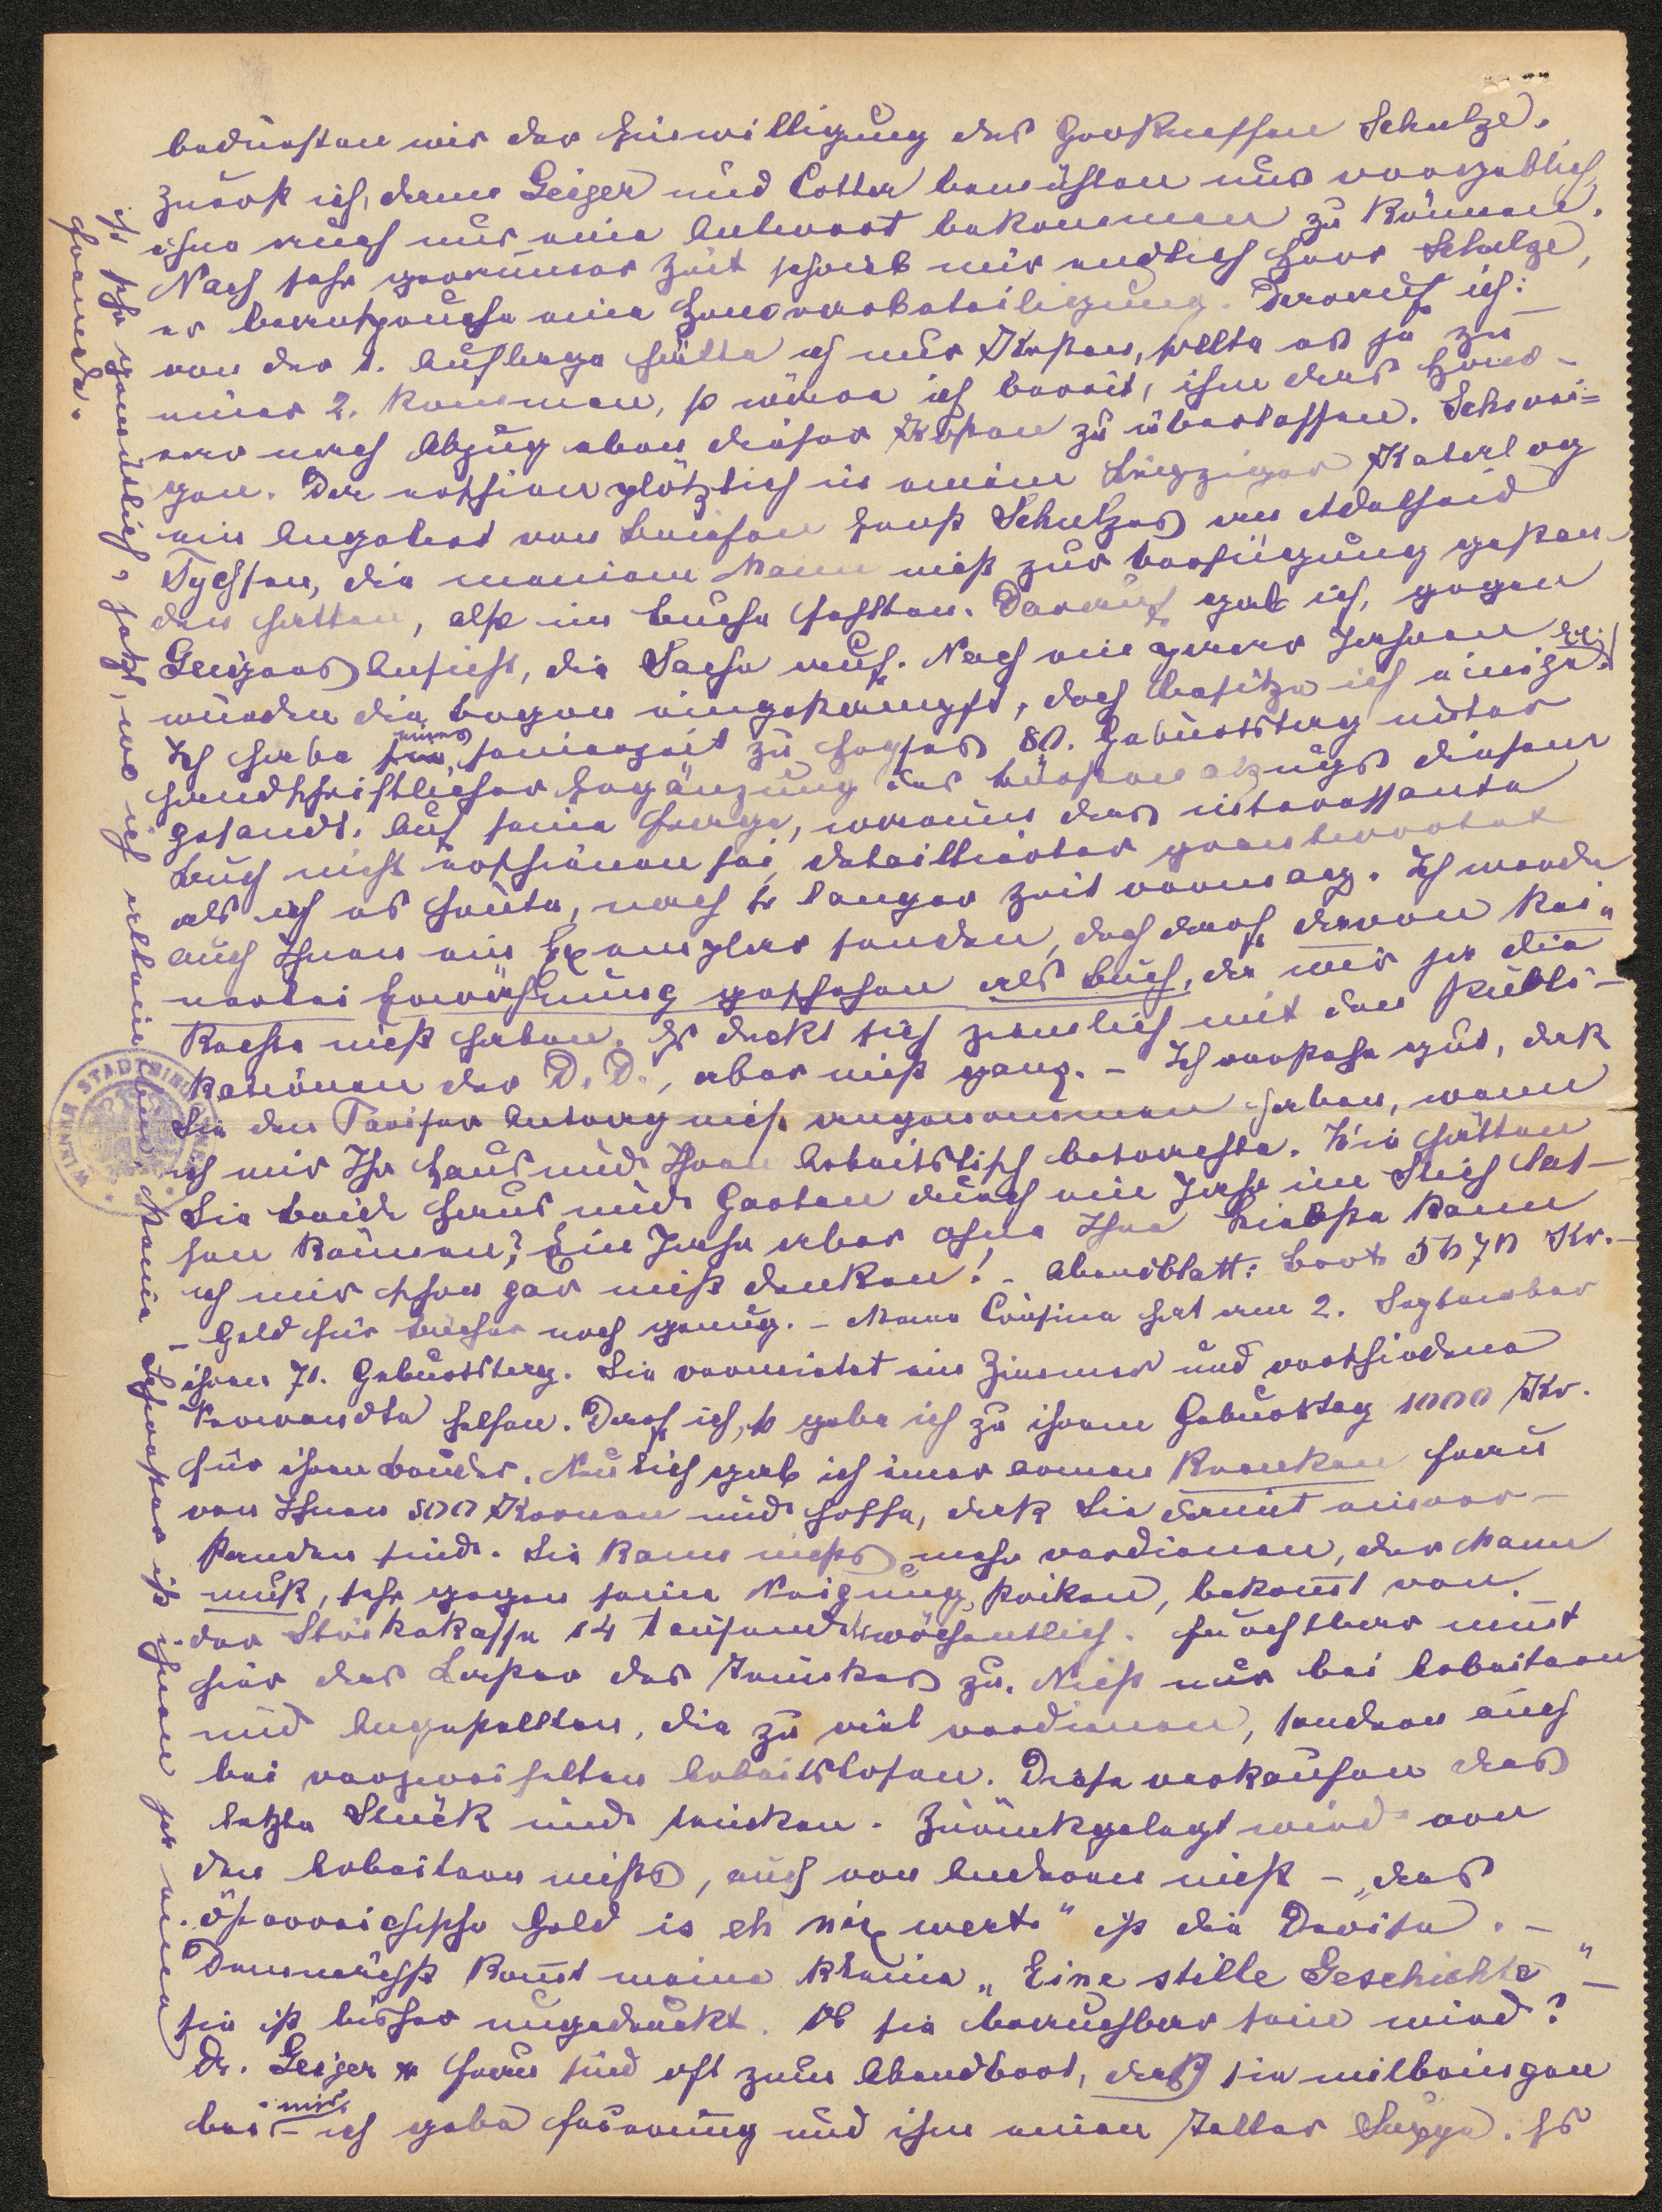 bedurften wir der Einwilligung des Großneffen Schulze.
zuerst ich, dann Geiger und Cotta bemühten uns vergeblich,
ohne auch nur eine Antwort bekommen zu können.
Nach sehr geraumer Zeit schrieb mir endlich Herr Schulze,
er beanspruche eine Honorarbeteiligung. Darauf ich:
von der 1. Auflage hätte ich nur Kosten, sollte es je zu
einer 2. kommen, so wäre ich bereit, ihm das Hono-
rar nach Abzug eben dieser Kosten zu überlassen. Schwei=
gen. Da erschien plötzlich in einem Leipziger Katalog
ein Angebot von Briefen Ernst Schulzes an Adelheid
Tychsen, die meinem Mann nicht zur Verfügung gestan-
den hatten, also im Buche fehlten. Darauf gab ich, gegen
Geigers Ansicht, die Sache auf. Nach ein paar Jahren
wurden die Bogen eingestampft, doch besitze ich einige Ex.
Ich habe eines seinerzeit zu Heyses 80. Geburtstag unter
handschriftlicher Ergänzung des Bürstenabzugs diesem
gesandt. Auf seine Frage, warum das interessante
Buch nicht erschienen sei, detaillierter geantwortet
als ich es heute, nach so langer Zeit vermag. Ich werde
auch Ihnen ein Exemplar senden, doch darf davon kei„
nerlei Erwähnung geschehen als Buch, da wir ja die
Rechte nicht haben. Es deckt sich ziemlich mit den Publi-
kationen der D. D., aber nicht ganz. – Ich verstehe gut, daß
Sie den Pariser Antrag nicht angenommen haben, wenn
ich mir Ihr Haus und Ihren Arbeitstisch betrachte. Wie hätten
Sie beide Haus und Garten durch ein Jahr im Stich las-
sen können? Ein Jahr aber ohne Ihre Briefe kann
ich mir schon gar nicht denken! – Abendblatt: Brot 5670 Kr. –
– Geld für Bücher noch genug. – Meine Cousine hat am 2. September
ihren 71. Geburtstag. Sie vermietet ein Zimmer und verschiedene
Verwandte helfen. Darf ich, so gebe ich zu ihrem Geburtstag 1000 Kr.
für ihren Bruder. Neulich gab ich einer armen kranken Frau
von Ihnen 500 Kronen und hoffe, daß Sie damit einver-
standen sind. Sie kann nichts mehr verdienen, der Mann
muß, sehr gegen seine Neigung, streiken, bekommt von
der Streikkasse 14 tausend wöchentlich. Furchtbar nimmt
hier das Laster des Trinkens zu. Nicht nur bei Arbeitern
und Angestellten, die zu viel verdienen, sondern auch
bei verzweifelten Arbeitslosen. Diese verkaufen das
letzte Stück und trinken. Zurückgelegt wird von
den Arbeitern nichts, auch von Anderen nicht – „das
österreichische Geld is eh nix wert“ ist die Devise. –
Demnächst kommt meine kleine „Eine stille Geschichte“ –
sie ist bisher ungedruckt. Ob sie brauchbar sein wird?
Dr. Geiger u Frau sind oft zum Abendbrot, das sie mitbringen
bei mir – ich gebe Feuerung und ihm einen Teller Suppe. Es
ist sehr gemütlich, jetzt, wo ich allein bin. Meine Schwester ist ihnen ja eine
Fremde.
WIENER STADTBIBLIOTHEK